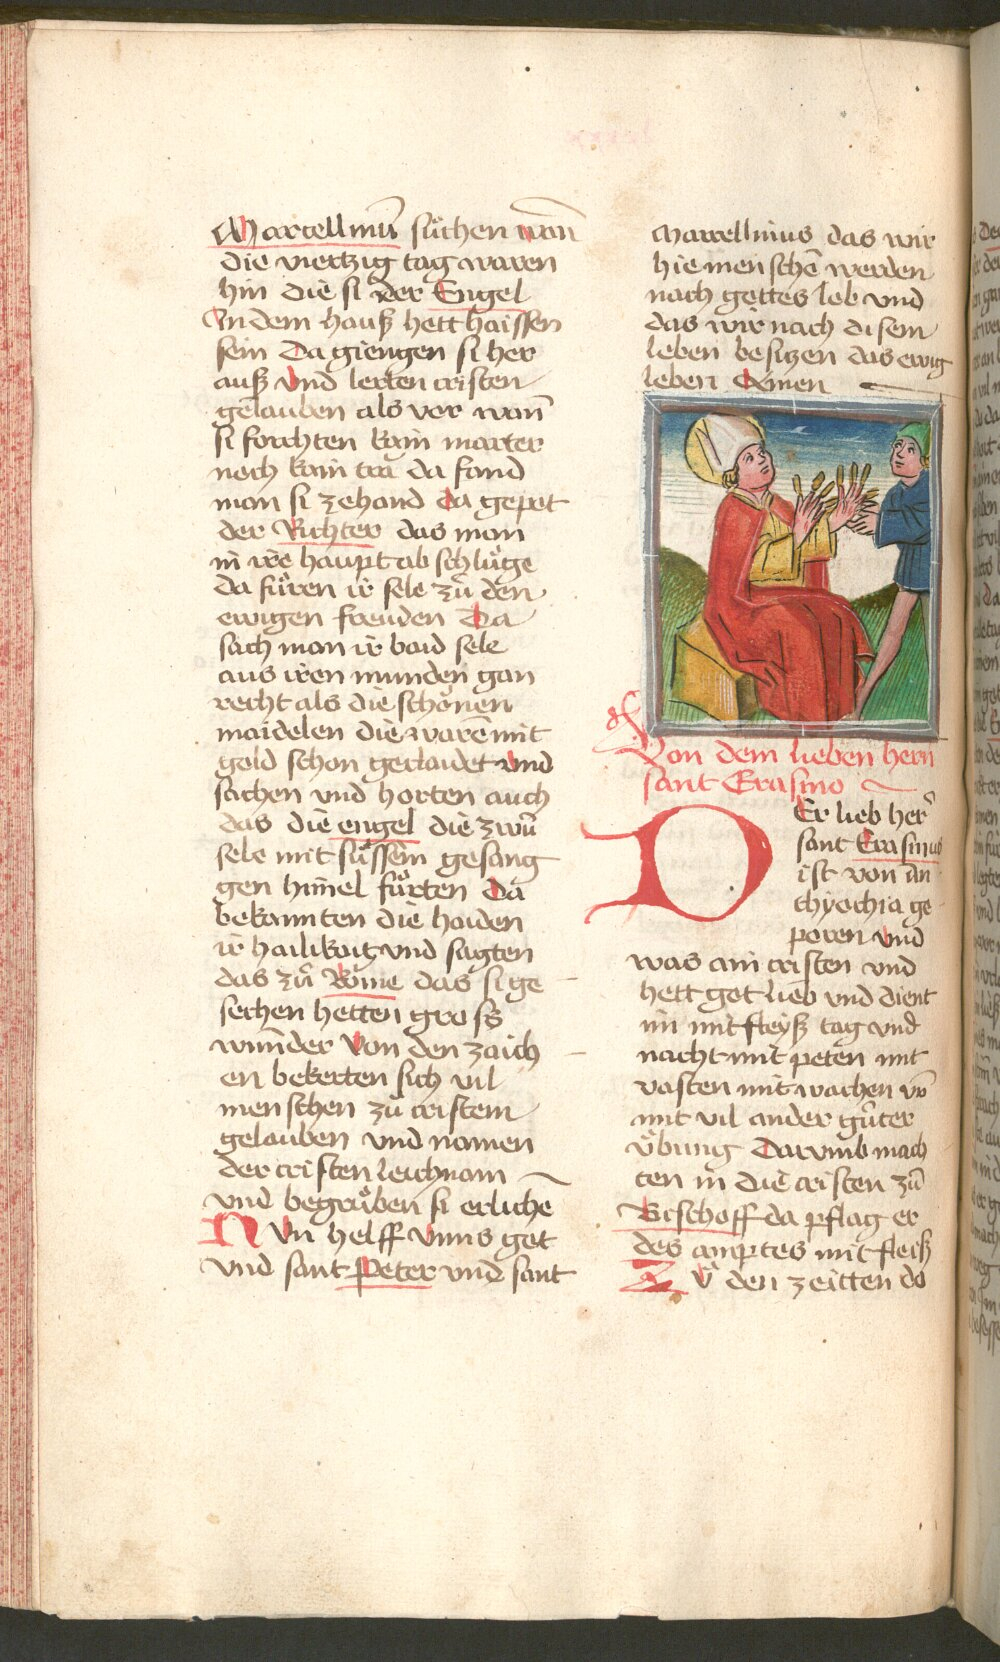 Marcellinū suͦchen wan̄
die viertzig tag waren
hin die si der Engel
In dem hauß hett haissen
sein Da giengen si her
auß vnd lerten cristen
gelauben als vor wan̄
si forchten kain marter
noch kain trā da fand
man si zehand da gepot
der Richter das man
in ire haupt ab schluͤge
da fuͤren ir sele zuͦ den
ewigen freuden Da
sach man ir baid sele
aus iren munden gan
recht als die schoͤnen
maidelen die warē mit
gold schon geclaidet vnd
sachen vnd horten auch
das die engel die zwuͦ
sele mit suͤssem gesang
gen himel fuͤrten Da
bekannten die haiden
ir hailikait vnd sagten
das zuͦ Rome das si ge
sechen hetten gross
wunder Von den zaich
en bekerten sich vil
menschen zuͦ cristem
gelauben vnd namen
der cristen leichnam
vnd begruͤben si erliche
NVn helff vnns got
vnd sant Peter vnd sant
Marcellinus das wir
hie menschē werden
nach gottes lob vnd
das wir nach disem
leben besitzen das ewig
leben Amen
Von dem lieben hern
sant Erasmo
DEr lieb her
sant Erasmus
ist von an
thyochia ge
poren vnd
was ain cristen vnd
hett got lieb vnd dient
im mit fleyß tag vnd
nacht mit peten mit
vasten mit wachen vn̄
mit vil ander guͦter
uͤbung Darumb mach
ten in die cristen zuͦ
Bischoff da pflag er
des amptes mit fleiß
Zuͦ den zeitten do